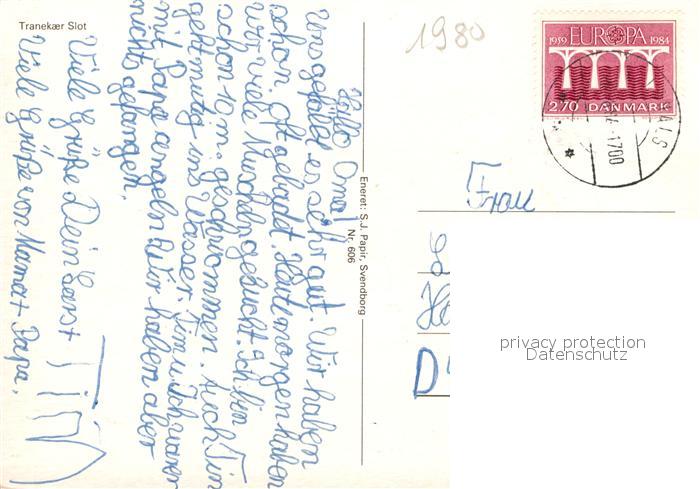 Tranekær Slot
1980
EUROPA
1959 1984
2.70 DANMARK
1700
Hallo Oma!
Uns gefällt es sehr gut. Wir haben
schon oft gebadet. Heute morgen haben
wir viele Muscheln gesucht. Ich bin
schon 10 m. geschwommen. Auch Tim
geht mutig ins Wasser. Tim u. Ich waren
mit Papa angeln. Wir haben aber
nichts gefangen.
Viele Grüße Dein Carst
TIM
Viele Grüße von Mama + Papa.
Eneret: S.J. Papir, Svendborg
Nr. 606
Frau
D
privacy protection
Datenschutz